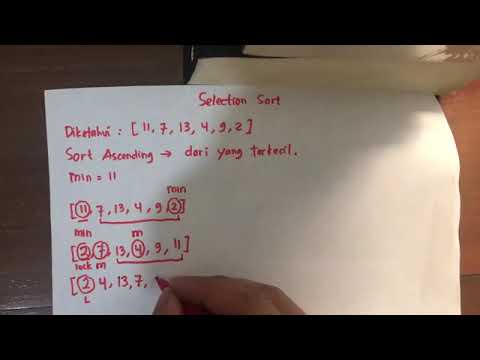 Selection Sort
Diketahui : [ 11, 7, 13, 4, 9, 2 ]
Sort Ascending → dari yang terkecil.
min = 11
min
[ 11, 7, 13, 4, 9, 2 ]
min m
[ 2, 7, 13, 4, 9, 11 ]
lock m
[ 2 4, 13, 7,
L